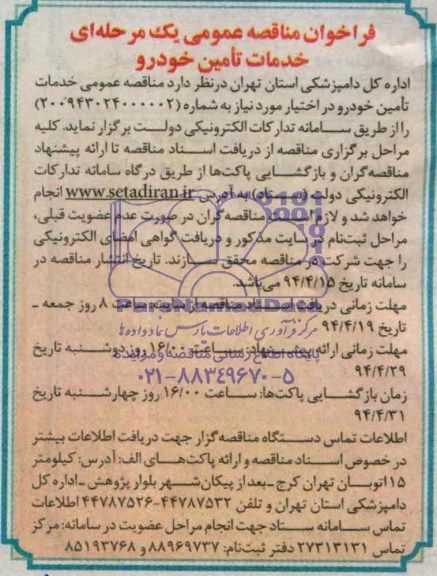 فراخوان مناقصه عمومی یک مرحله‌ای
خدمات تأمین خودرو
اداره کل دامپزشکی استان تهران درنظر دارد مناقصه عمومی خدمات
تأمین خودرو در اختیار مورد نیاز به شماره (۲۰۰۹۴۳۰۲۴۰۰۰۰۰۲)
را از طریق سامانه تدارکات الکترونیکی دولت برگزار نماید. کلیه
مراحل برگزاری مناقصه از دریافت اسناد مناقصه تا ارائه پیشنهاد
مناقصه‌گران و بازگشایی پاکت‌ها از طریق درگاه سامانه تدارکات
الکترونیکی دولت (ستاد) به آدرس www.setadiran.ir انجام
خواهد شد و لازم است مناقصه‌گران در صورت عدم عضویت قبلی،
مراحل ثبت‌نام در سایت مذکور و دریافت گواهی امضای الکترونیکی
را جهت شرکت در مناقصه محقق سازند. تاریخ انتشار مناقصه در
سامانه تاریخ ۹۴/۴/۱۵ می‌باشد.
مهلت زمانی دریافت اسناد مناقصه از سایت: ساعت ۸ روز جمعه ـ
تاریخ ۹۴/۴/۱۹
مهلت زمانی ارائه پیشنهاد: ساعت ۱۶/۰۰ روز دوشنبه تاریخ
۹۴/۴/۲۹
زمان بازگشایی پاکت‌ها: ساعت ۱۶/۰۰ روز چهارشنبه تاریخ
۹۴/۴/۳۱
اطلاعات تماس دستگاه مناقصه‌گزار جهت دریافت اطلاعات بیشتر
در خصوص اسناد مناقصه و ارائه پاکت‌های الف: آدرس: کیلومتر
۱۵ اتوبان تهران کرج ـ بعد از پیکان‌شهر بلوار پژوهش ـ اداره کل
دامپزشکی استان تهران و تلفن ۴۴۷۸۷۵۳۲-۴۴۷۸۷۵۲۶ اطلاعات
تماس سامانه ستاد جهت انجام مراحل عضویت در سامانه: مرکز
تماس ۲۷۳۱۳۱۳۱ دفتر ثبت‌نام: ۸۸۹۶۹۷۳۷ و ۸۵۱۹۳۷۶۸
ParsNamadData
مرکز فرآوری اطلاعات پارس نماد داده‌ها
پایگاه اطلاع رسانی مناقصه و مزایده
۰۲۱-۸۸۳۴۹۶۷۰-۵